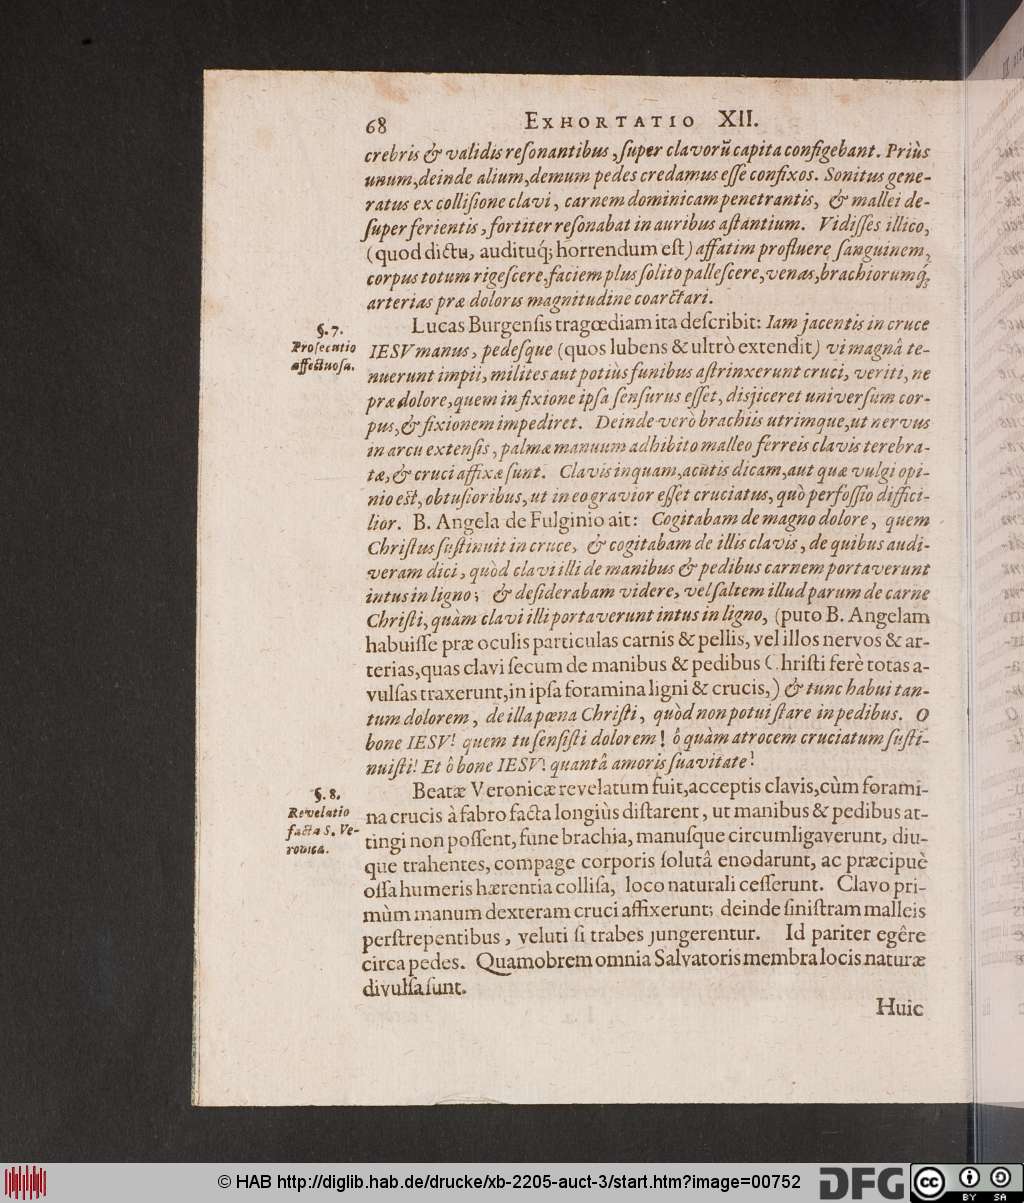 68 EXHORTATIO XII.
crebris & validis reſonantibus, ſuper clavorũ capita configebant. Priùs
unum, deinde alium, demum pedes credamus eſſe confixos. Sonitus gene-
ratus ex colliſione clavi, carnem dominicam penetrantis, & mallei de-
ſuper ferientis, fortiter reſonabat in auribus aſtantium. Vidiſſes illico,
(quod dictu, audituq́; horrendum eſt) affatim profluere ſanguinem,
corpus totum rigeſcere, faciem plus ſolito palleſcere, venas, brachiorumq́;
arterias præ doloris magnitudine coarctari.
§. 7.
Proſecutio
affectuoſa.
Lucas Burgenſis tragœdiam ita deſcribit: Iam jacentis in cruce
IESV manus, pedeſque (quos lubens & ultrò extendit) vi magnâ te-
nuerunt impii, milites aut potiùs funibus aſtrinxerunt cruci, veriti, ne
præ dolore, quem in fixione ipſa ſenſurus eſſet, disjiceret univerſum cor-
pus, & fixionem impediret. Deinde verò brachiis utrimque, ut nervus
in arcu extenſis, palmæ manuum adhibito malleo ferreis clavis terebra-
tæ, & cruci affixæ ſunt. Clavis inquam, acutis dicam, aut quæ vulgi opi-
nio est, obtuſioribus, ut in eo gravior eſſet cruciatus, quò perfoſſio diffici-
lior. B. Angela de Fulginio ait: Cogitabam de magno dolore, quem
Chriſtus ſuſtinuit in cruce, & cogitabam de illis clavis, de quibus audi-
veram dici, quòd clavi illi de manibus & pedibus carnem portaverunt
intus in ligno; & deſiderabam videre, vel ſaltem illud parum de carne
Chriſti, quàm clavi illi portaverunt intus in ligno, (puto B. Angelam
habuiſſe præ oculis particulas carnis & pellis, vel illos nervos & ar-
terias, quas clavi ſecum de manibus & pedibus Chriſti ferè totas a-
vulſas traxerunt, in ipſa foramina ligni & crucis,) & tunc habui tan-
tum dolorem, de illa pœna Chriſti, quòd non potui ſtare in pedibus. O
bone IESV! quem tu ſenſiſti dolorem! ô quàm atrocem cruciatum ſuſti-
nuiſti! Et ô bone IESV! quantâ amoris ſuavitate!
§. 8.
Revelatio
facta S. Ve-
ronica.
Beatæ Veronicæ revelatum fuit, acceptis clavis, cùm forami-
na crucis à fabro facta longiùs diſtarent, ut manibus & pedibus at-
tingi non poſſent, fune brachia, manuſque circumligaverunt, diu-
que trahentes, compage corporis ſolutâ enodarunt, ac præcipuè
oſſa humeris hærentia colliſa, loco naturali ceſſerunt. Clavo pri-
mùm manum dexteram cruci affixerunt; deinde ſiniſtram malleis
perſtrepentibus, veluti ſi trabes jungerentur. Id pariter egêre
circa pedes. Quamobrem omnia Salvatoris membra locis naturæ
divulſa ſunt.
Huic
© HAB http://diglib.hab.de/drucke/xb-2205-auct-3/start.htm?image=00752
DFG
cc BY SA